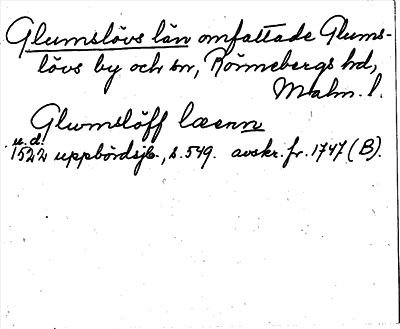 Glumslövs län omfattade Glums-
lövs by och sn, Rönnebergs hd,
Malm. l.
Glumslöff læenn
u.d.
1522 uppbördsjb., s. 549. avskr. fr. 1747 (B).